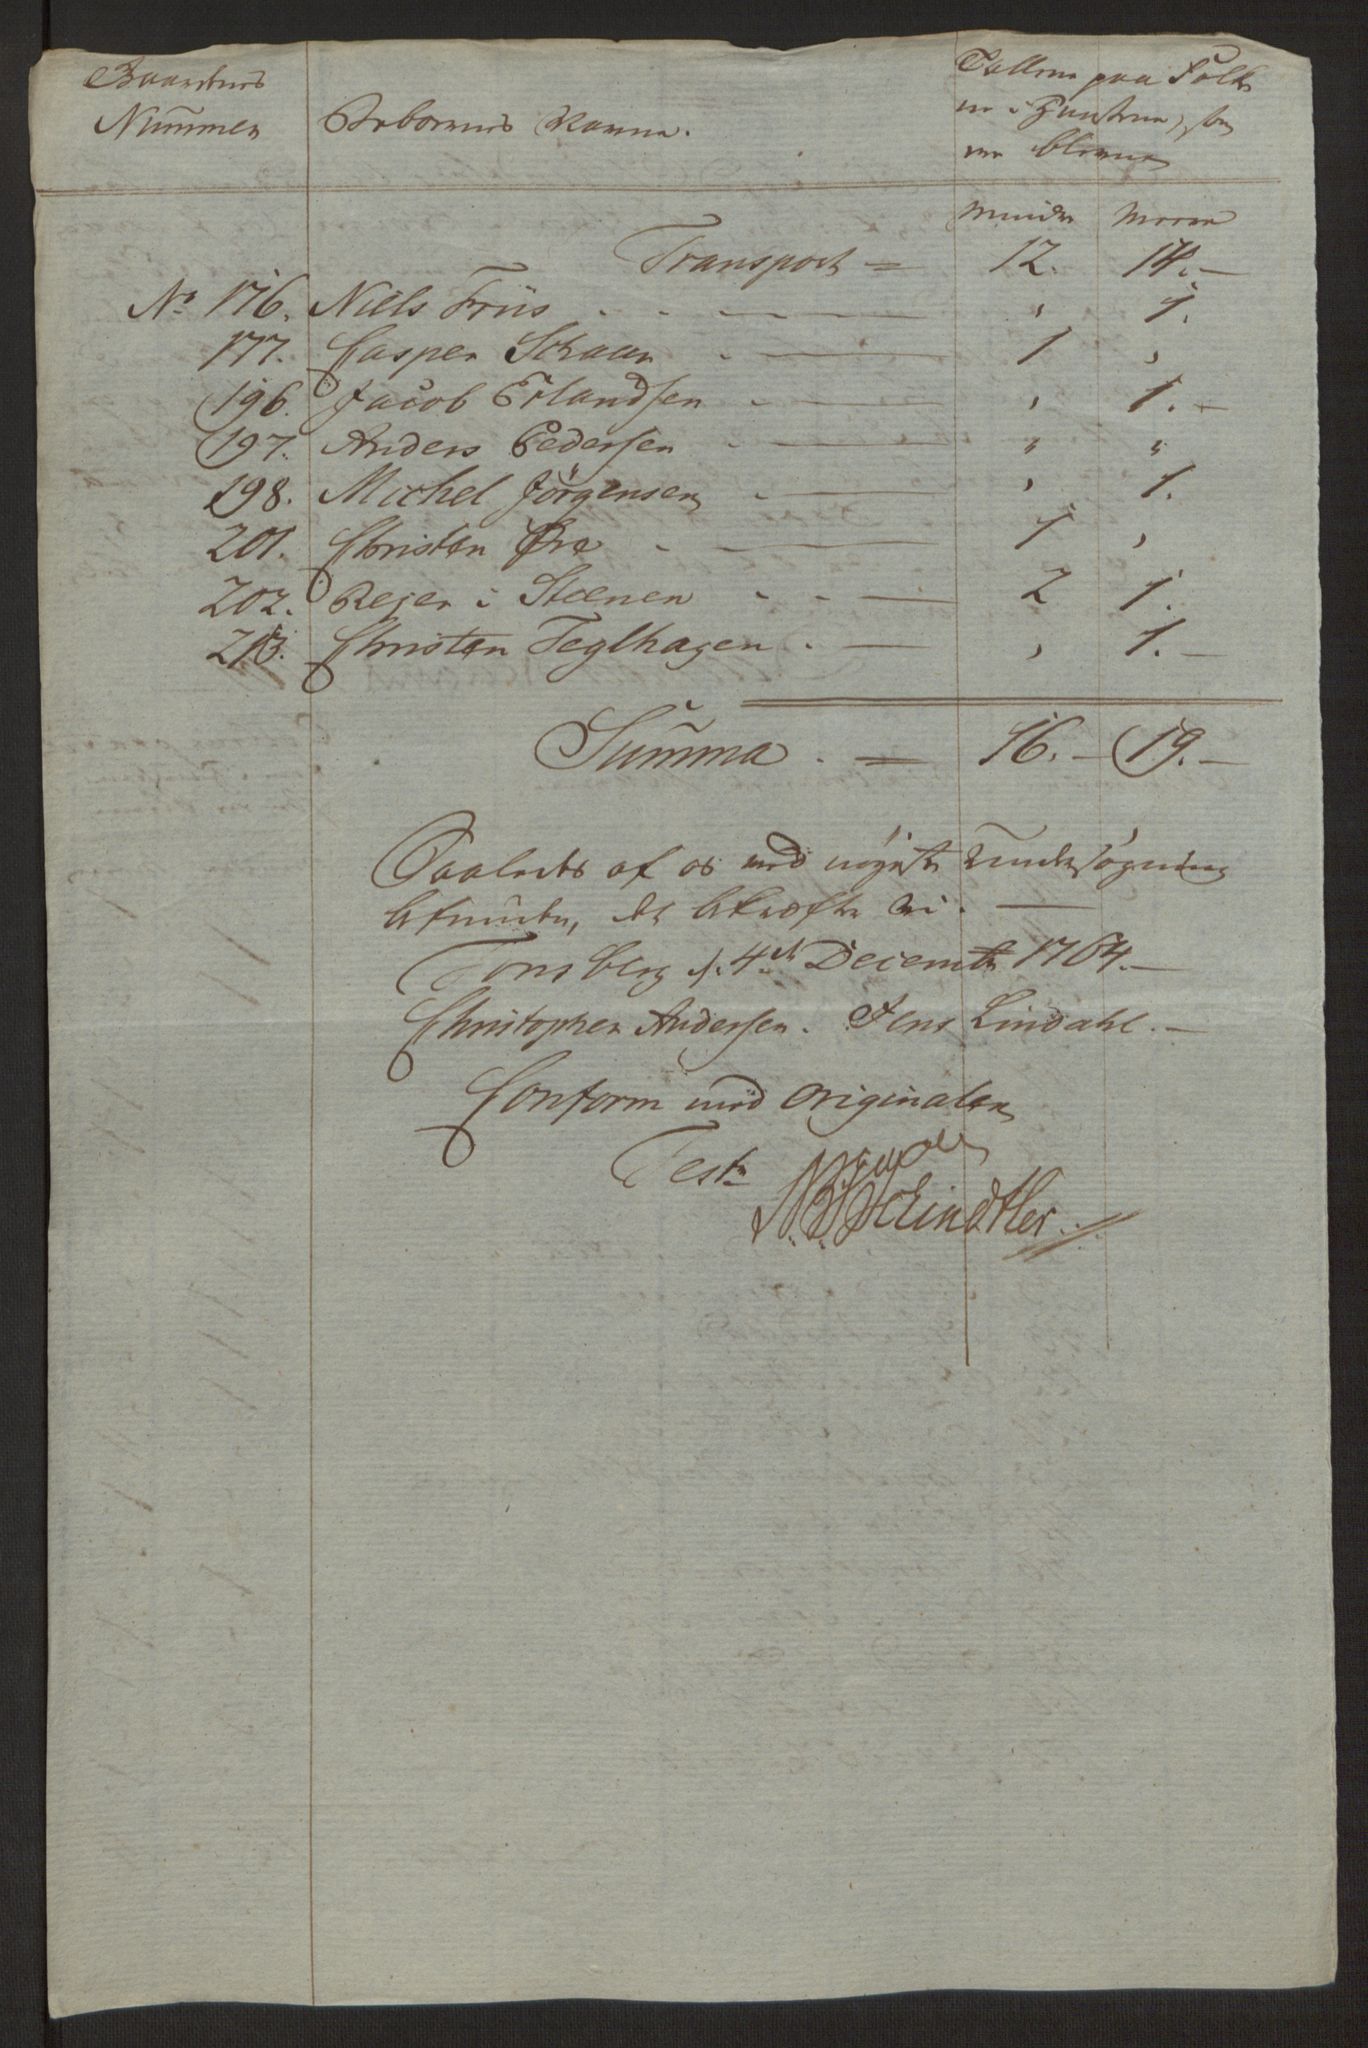 Gaardens Nummer
Beboernes Navne.
Tallene paa Folke
ne i Huusene, som
ere blevne
Mindre Meere
Transport = 12. 14.-
No 176. Niels Friis . . - — " 1.
177. Casper Schaar . — 1 "
196. Jacob Erlandsen . — " 1.-
197. Anders Pedersen . — " "
198. Michel Jörgensen . — " 1.
201. Christen Øre . — 1 "
202. Rejer i Steenen . . — 2 1.
213. Christen Teglhagen . — " 1.-
Summa . = 16.- 19.-
Saaledes af os med nøyeste Undersøgning
befunden, det bekræfter Vi. —
Tønsberg d. 4de Decembr 1764.-
Christopher Andersen. Jens Lindahl.-
Conform med Originalen
Test
N. Schindtler